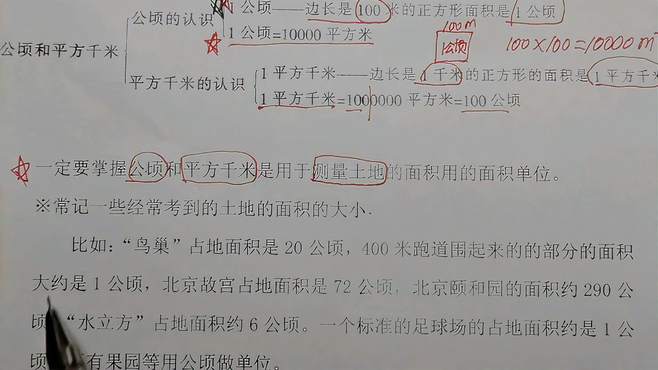 公顷的认识
1 公顷——边长是 100 米的正方形面积是 1 公顷
100m
1 公顷=10000 平方米
1公顷
100×100=10000 m²
公顷和平方千米
平方千米的认识
1 平方千米——边长是 1 千米的正方形的面积是 1 平方千米
1 平方千米=1000000 平方米=100 公顷
一定要掌握公顷和平方千米是用于测量土地的面积用的面积单位。
※常记一些经常考到的土地的面积的大小.
比如：“鸟巢”占地面积是 20 公顷，400 米跑道围起来的的部分的面积
大约是 1 公顷，北京故宫占地面积是 72 公顷，北京颐和园的面积约 290 公
顷，“水立方”占地面积约 6 公顷。一个标准的足球场的占地面积约是 1 公
顷 有果园等用公顷做单位。